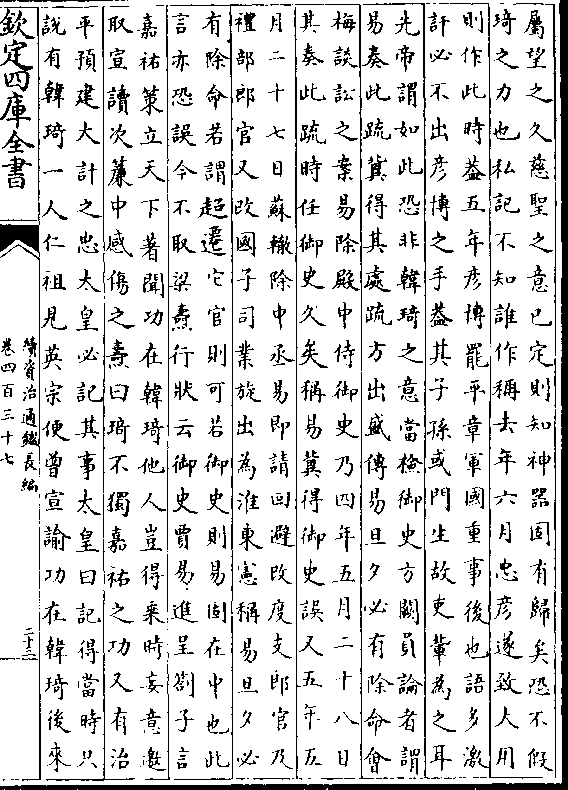 屬望之久慈聖之意已定則知神器固有歸矣恐不假
琦之力也私記不知誰作稱去年六月忠彦遂致大用
則作此時葢五年彦博罷平章軍國重事後也語多激
訐必不出彦博之手葢其子孫或門生故吏輩為之耳
先帝謂如此恐非韓琦之意當檢御史方闕員論者謂
易奏此疏冀得其處疏方出盛傳易旦夕必有除命會
梅談訟之案易除殿中侍御史乃四年五月二十八日
其奏此疏時任御史久矣稱易冀得御史誤又五年五
月二十七日蘇轍除中丞易即請回避改度支郎官及
禮部郎官又改國子司業旋出為淮東憲稱易旦夕必
有除命若謂超遷它官則可若御史則易固在中也此
言亦恐誤今不取梁燾行狀云御史賈易進呈劄子言
嘉祐策立天下著聞功在韓琦他人豈得乘時妄意邀
取宣讀次簾中感傷之燾曰琦不獨嘉祐之功又有治
平預建大計之忠太皇必記其事太皇曰記得當時只
說有韓琦一人仁祖見英宗便曾宣諭功在韓琦後來
欽定四庫全書
續資治通鑑長編
卷四百三十七
二十三